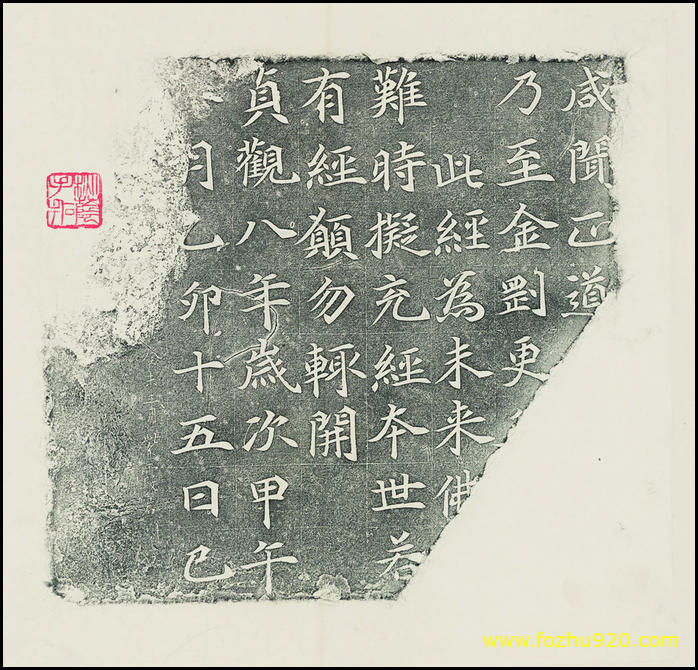 咸聞正道
乃至金剛更
此經為未来佛
難時擬充經本世若
有經願勿輒開
貞觀八年歲次甲午
月乙卯十五日己
www.fozhu920.com